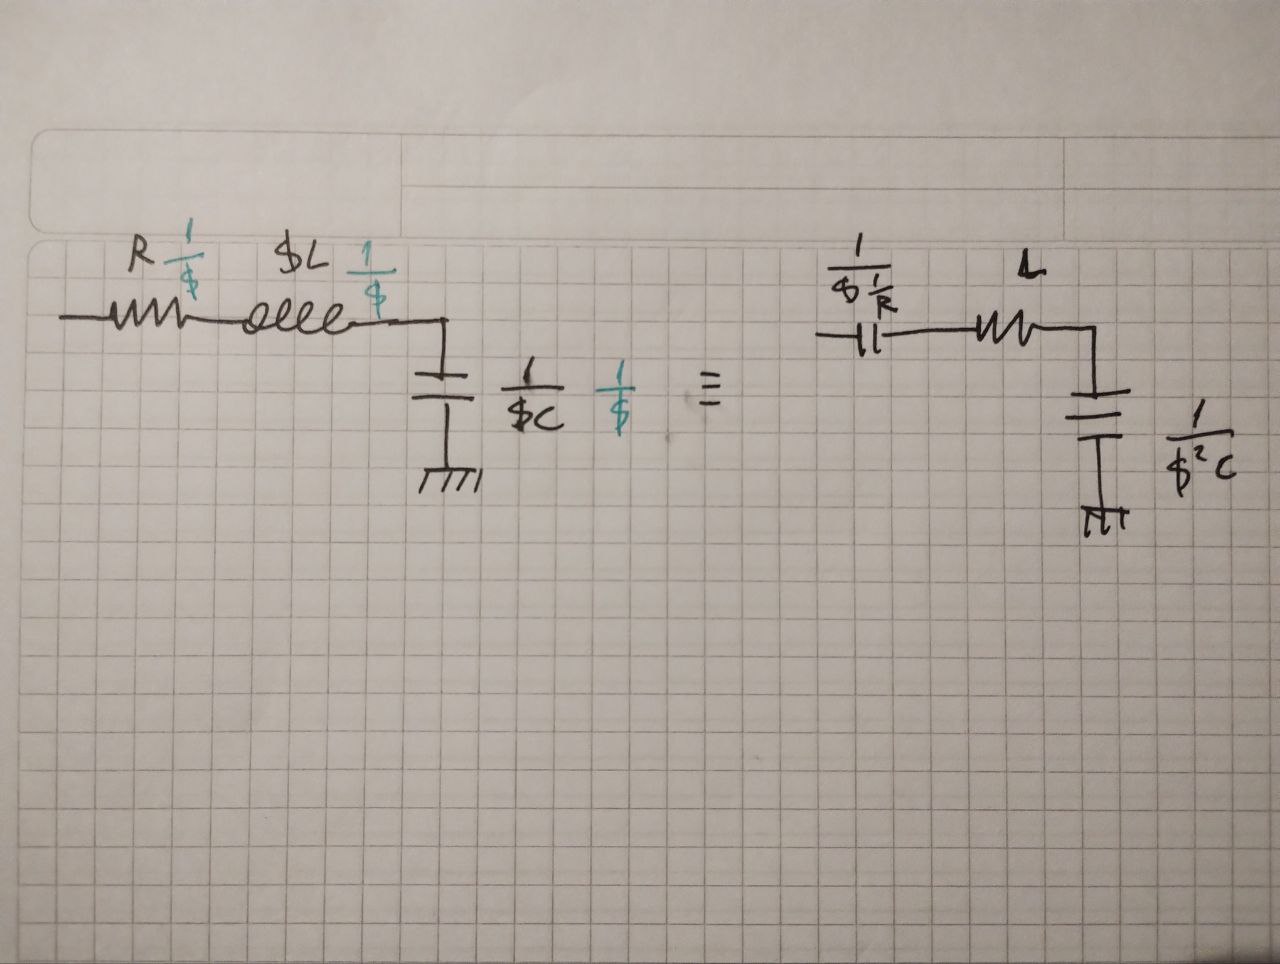 R 1/$ $L 1/$
1/$C 1/$ ≡
1/($ 1/R) L
1/$²C